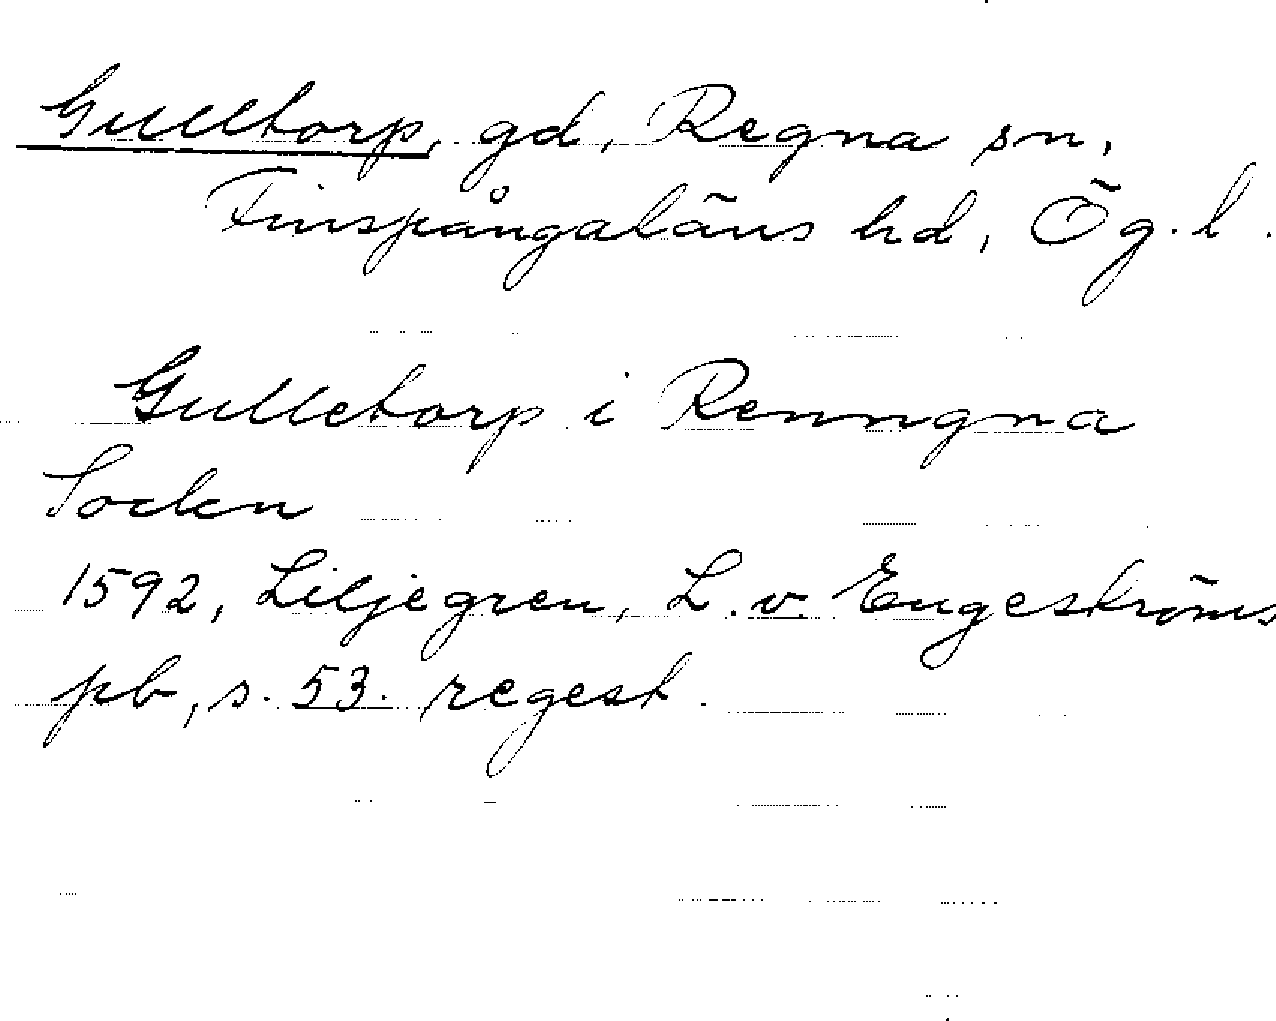 Gulltorp, gd, Regna sn,
Finspångaläns hd, Ög. l.
Gulletorp i Renngna
Socken
1592, Liljegren, L. v. Engeströms
pb, s. 53. regest.